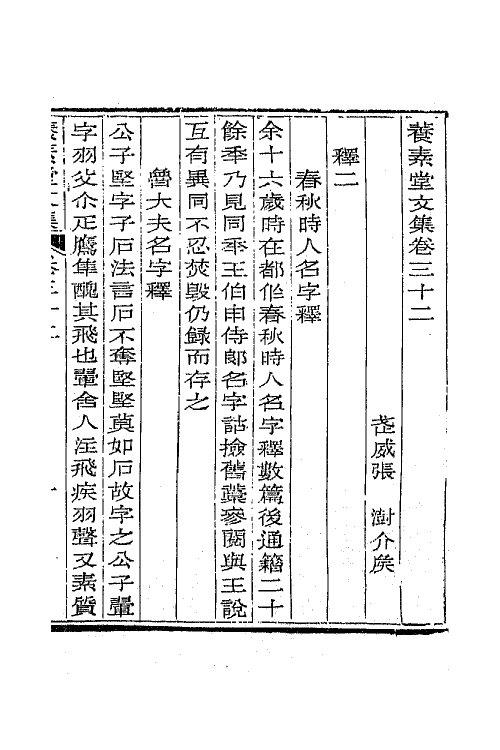 養素堂文集卷三十二
武威張 澍介侯
釋二
春秋時人名字釋
余十六歲時在都作春秋時人名字釋數篇後通籍二十
餘年乃見同年王伯申侍郎名字詁撿舊稾參閱與王說
互有異同不忍焚毀仍錄而存之
魯大夫名字釋
公子堅字子石法言石不奪堅堅莫如石故字之公子翬
字羽父介疋鷹隼醜其飛也翬舍人注飛疾羽聲又素質